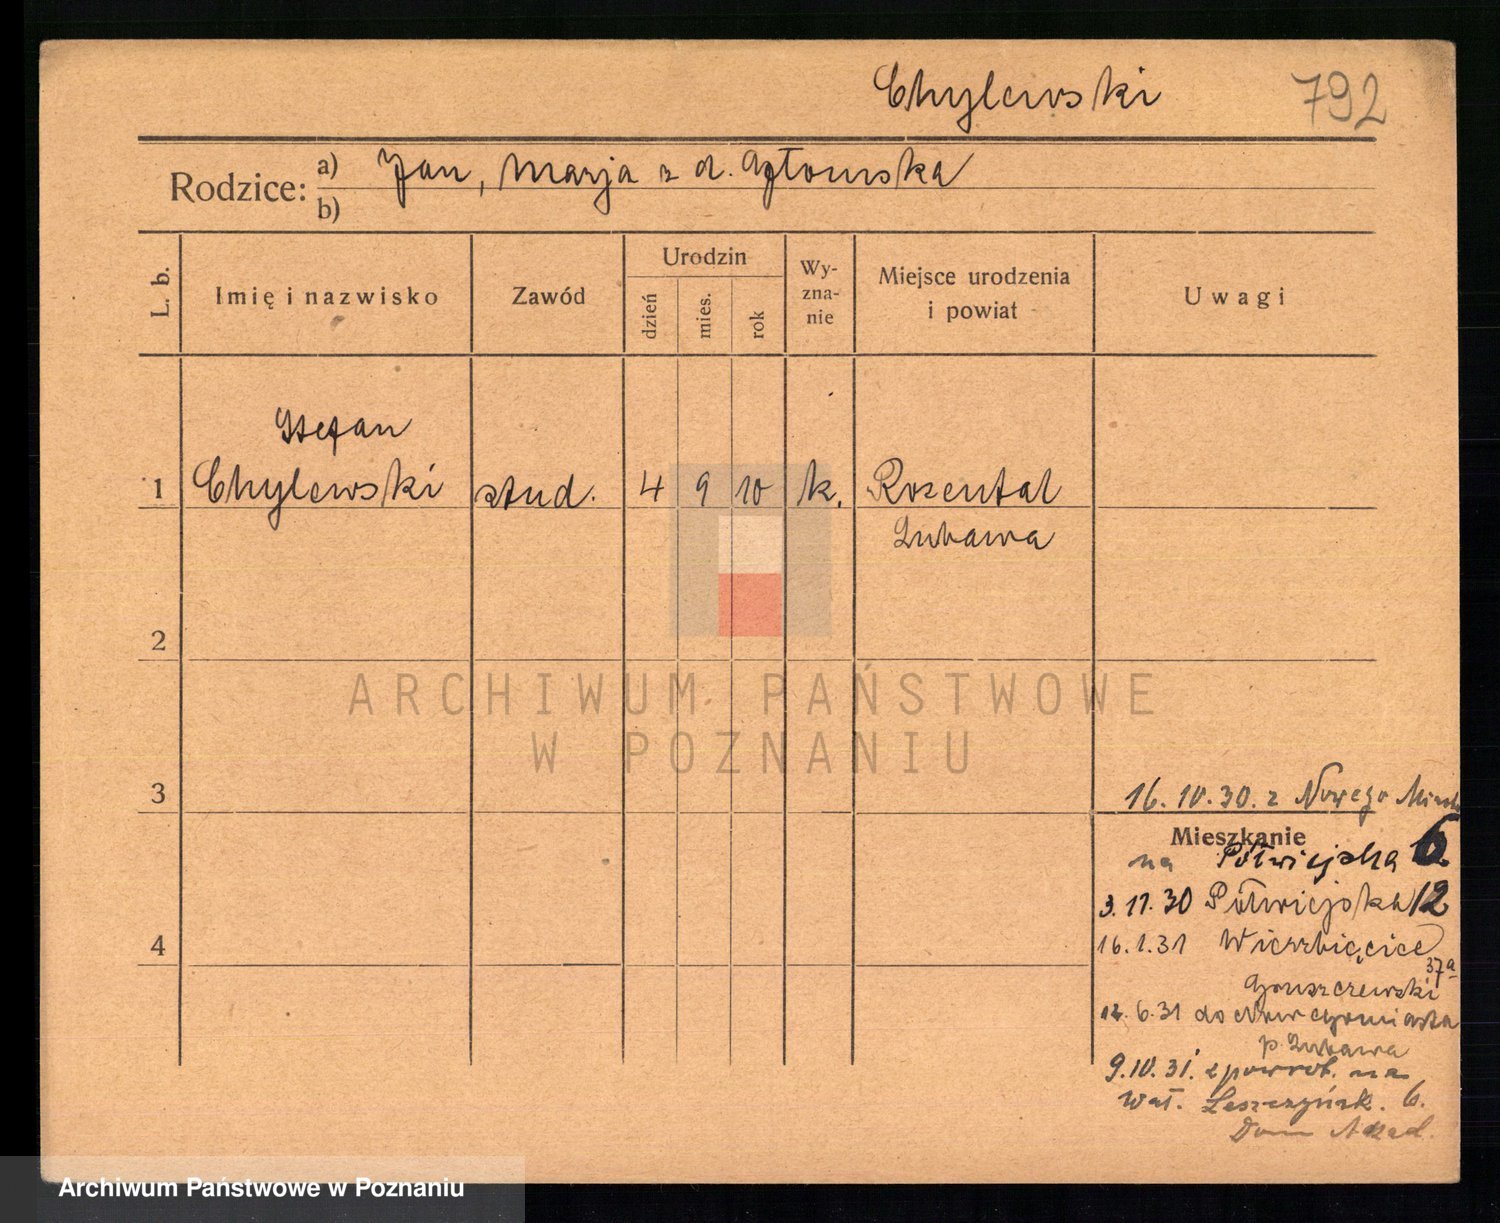 Chylewski 792
Rodzice: a) Jan, Marja z d.
b)
L. b. Imię i nazwisko Zawód Urodzin dzień mies. rok Wy-zna-nie Miejsce urodzenia i powiat Uwagi
Stefan
1 Chylewski stud. 4 9 10 k. Rozental
Lubawa
2
ARCHIWUM PAŃSTWOWE
W POZNANIU
3
16.10.30. z Nowego Miasta
Mieszkanie
na Półwiejska 6.
3.11.30 Półwiejska 12
4
16.1.31 Wierzbięcice
37a
12.6.31 do Nowegomiasta
p. Lubawa
9.10.31. z powrot. na
Wał. Leszczyńsk. 6.
Dom Akad.
Archiwum Państwowe w Poznaniu